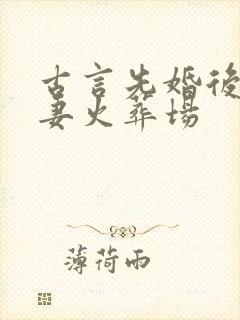 古言先婚後
妻火葬場
薄荷雨